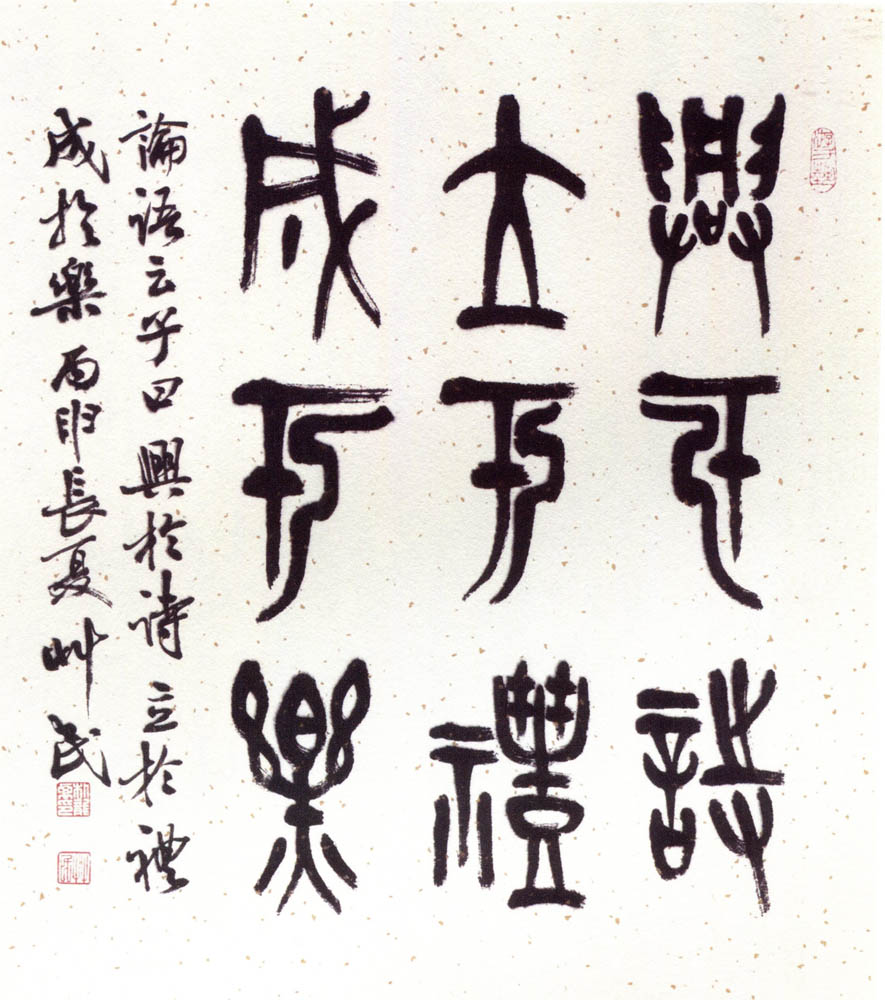 興于詩
立于禮
成于樂
論語云子曰興於詩立於禮
成於樂丙申長夏艸民